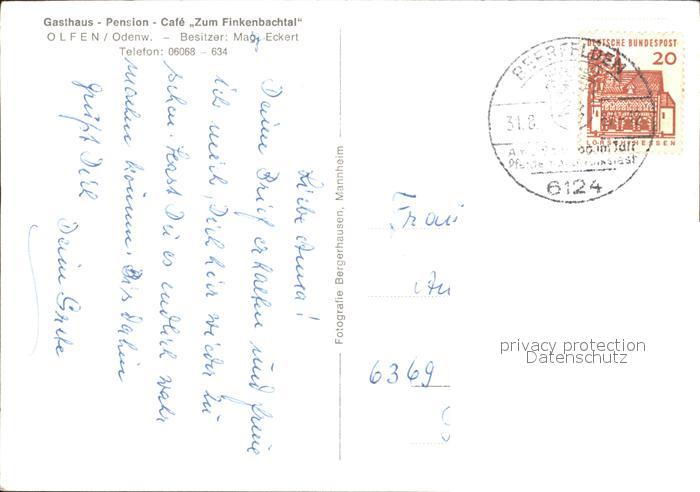 Gasthaus - Pension - Café „Zum Finkenbachtal"
OLFEN / Odenw. – Besitzer: Marg. Eckert
Telefon: 06068 – 634
Liebe Anna!
Deine Brief erhalten und freue
ich mich, Dich hier wieder zu
sehen. Hast Du es endlich wahr
machen können. Bis dahin
grüßt Dich
Deine Grete
Fotografie Bergerhausen, Mannheim
BEERFELDEN
31.8.
6124
DEUTSCHE BUNDESPOST
20
LORSCH/HESSEN
Frau
An
6369
privacy protection
Datenschutz